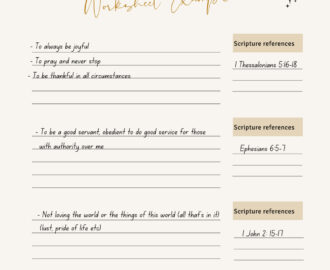 Worksheet Example
- To always be joyful
- To pray and never stop
- To be thankful in all circumstances
Scripture references
1 Thessalonians 5:16-18
- To be a good servant, obedient to do good service for those
with authority over me
Scripture references
Ephesians 6:5-7
- Not loving the world or the things of this world (all that's in it)
(lust, pride of life etc)
Scripture references
1 John 2: 15-17